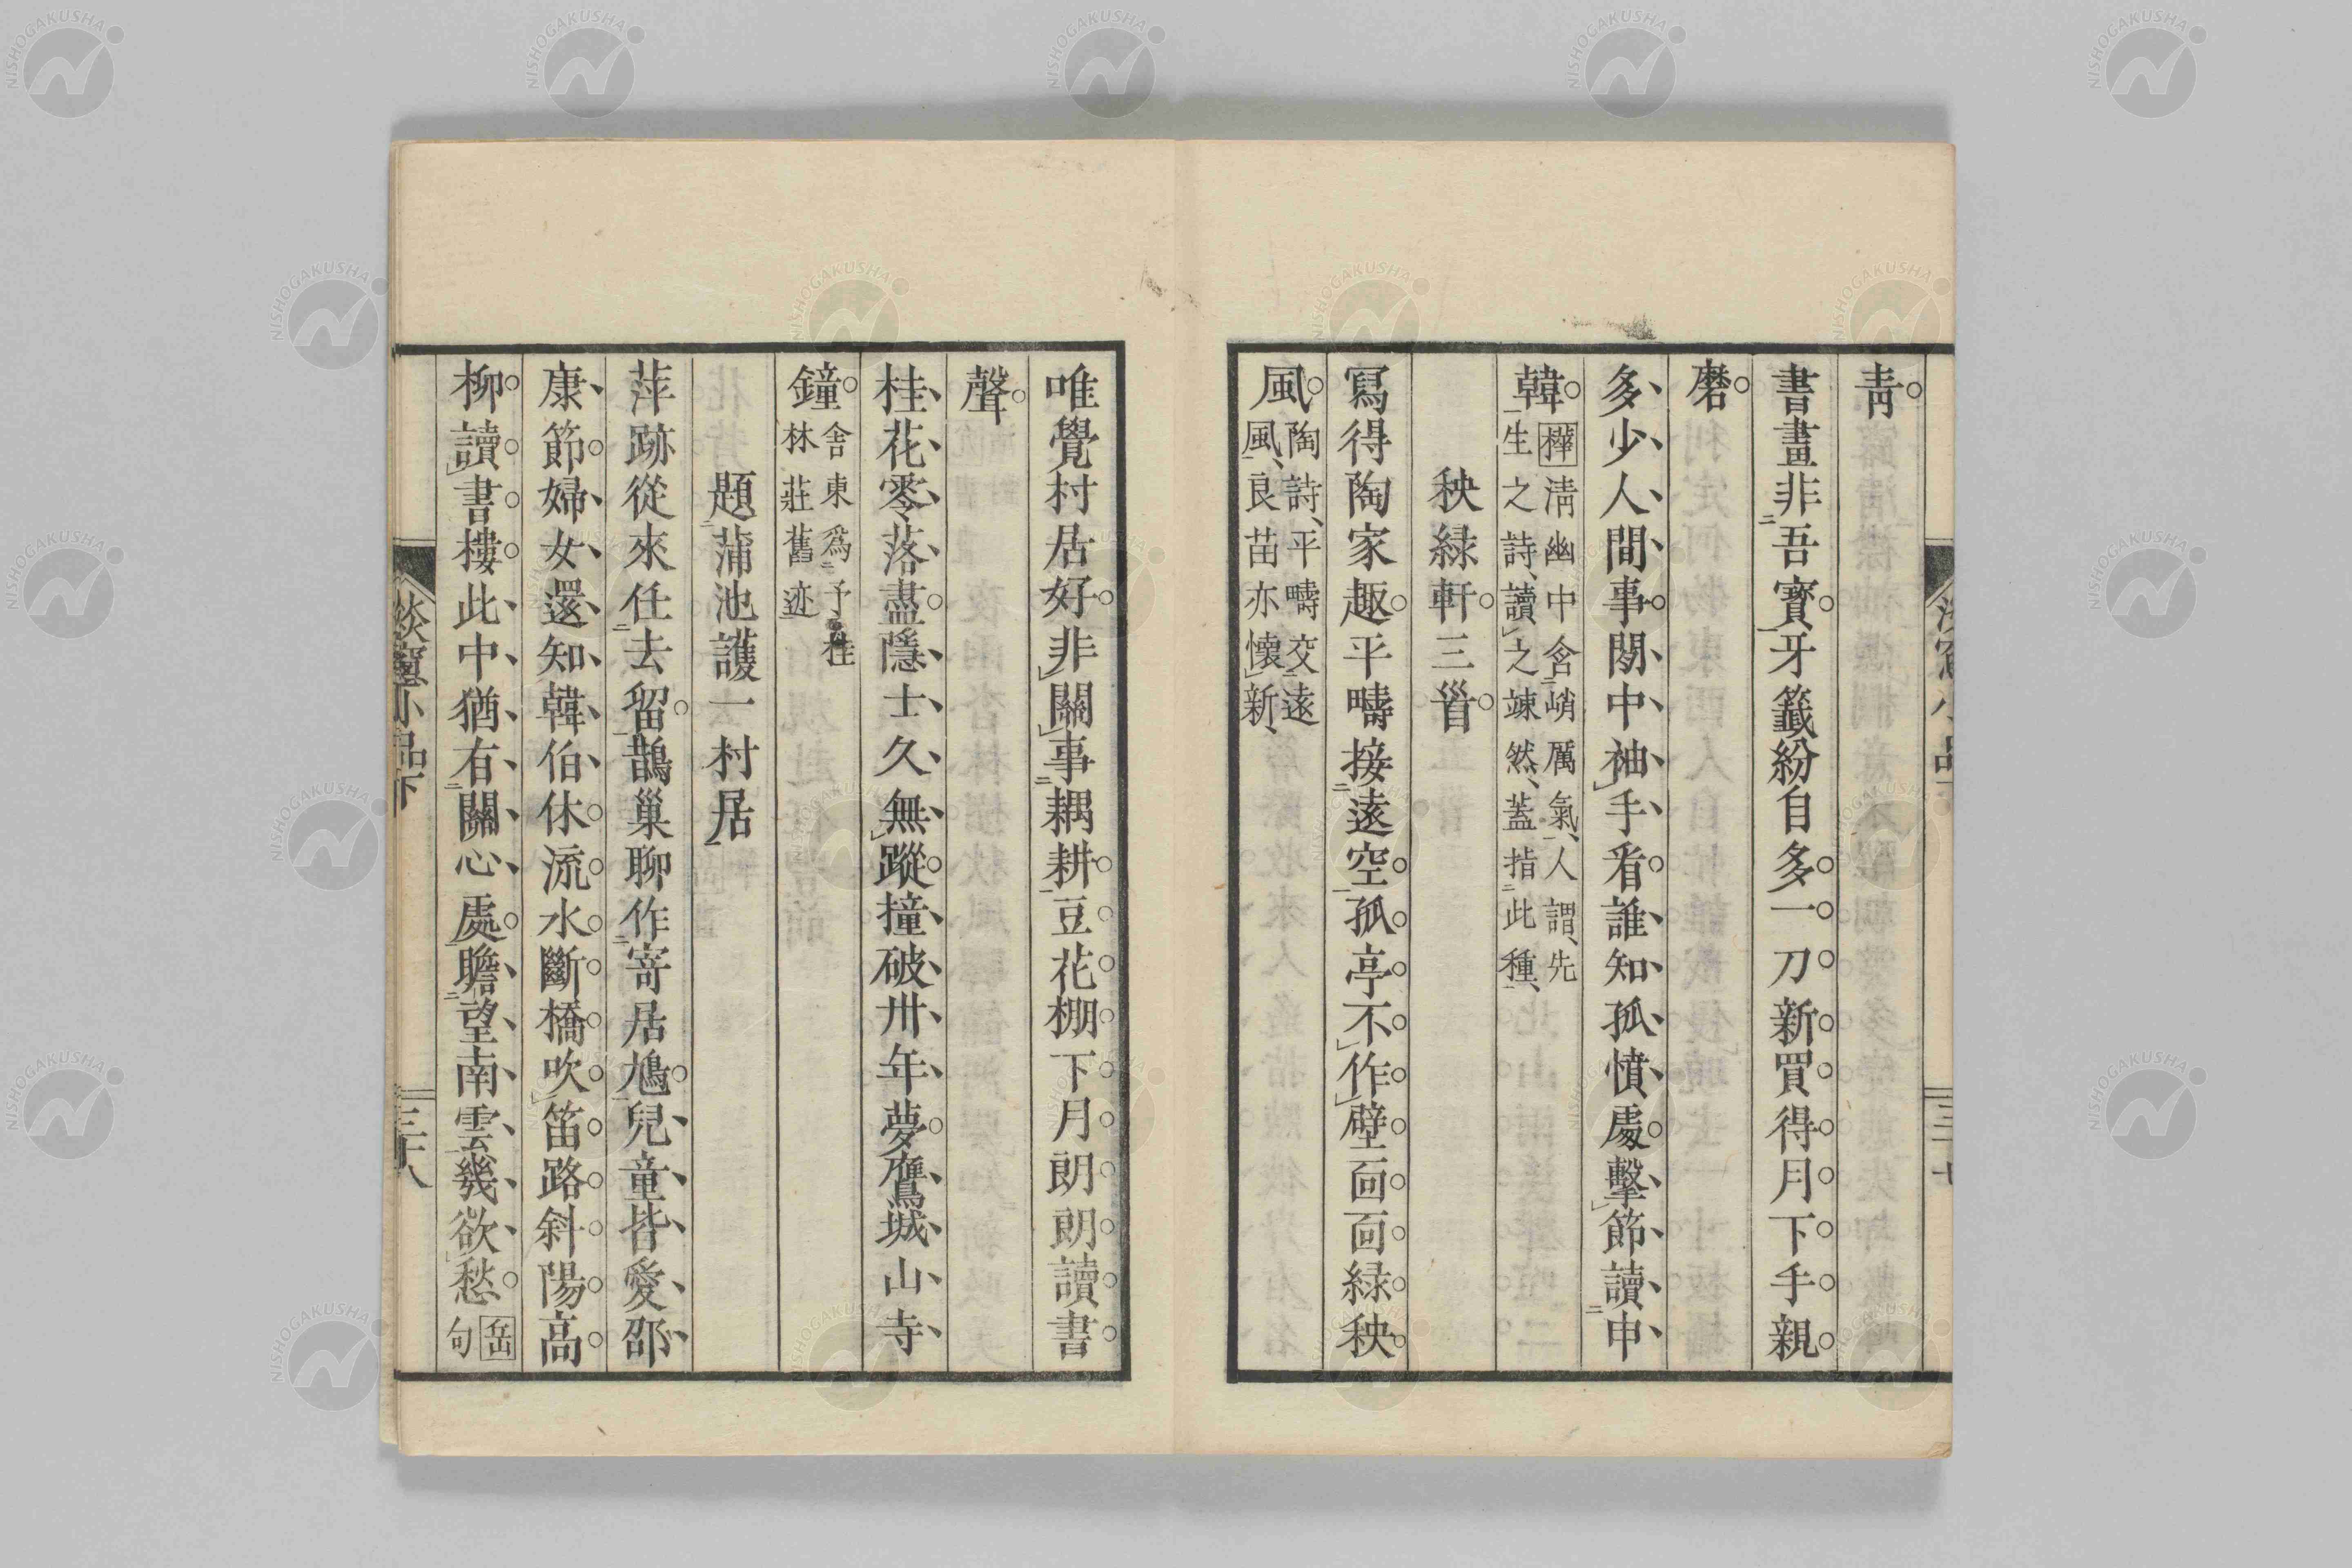 靑
書畫非吾寶牙籤紛自多一刀新買得月下手親
磨
多少人間事閱中袖手看誰知孤憤處擊節讀申
韓
樺淸幽中含峭厲氣人謂先
生之詩讀之竦然蓋指此種
秧緑軒三首
寫得陶家趣平疇接遠空孤亭不作壁面面緑秧
風
陶詩平疇交遠
風良苗亦懷新
唯覺村居好非關事耦耕豆花棚下月朗朗讀書
聲
桂花零落盡隱士久無蹤撞破卅年夢鷹城山寺
鐘
舍東爲予桂
林莊舊迹
題蒲池護一村居
萍跡從來任去留鵲巢聊作寄居鳩兒童皆愛邵
康節婦女還知韓伯休流水斷橋吹笛路斜陽高
柳讀書樓此中猶有關心處瞻望南雲幾欲愁
岳
句
淡窻小品下
三十八
NISHOGAKUSHA